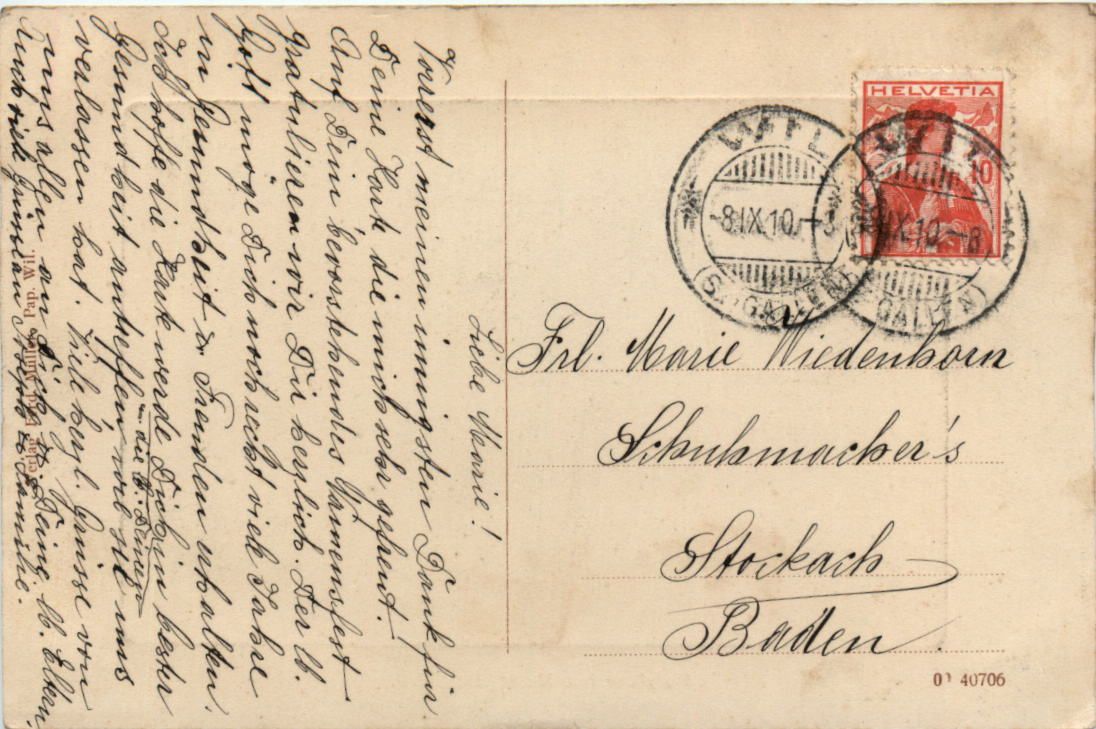 Liebe Marie!
Vorerst meinen innigsten Dank für
Deine Karte die mich sehr gefreut.
Auf Dein bevorstehendes Namensfest
gratulieren wir Dir herzlich. Der lb.
Gott möge Dich noch recht viele Jahre
in Gesundheit & Freuden erhalten.
Ich hoffe die Karte werde Dich in bester
" die b. Deinen
Gesundheit antreffen wie sie uns
verlassen hat. Viele hrzl. Grüsse von
uns allen an Dich & Deine lb. Eltern.
Auch viele Grüsse an Familie.
Verlag Pap. Wil.
HELVETIA
10
WIL
8.IX.10.-8
(ST. GALLEN)
WIL
IX.10-8
GALLEN)
Frl. Marie Wiedenhorn
Schuhmacher's
Stockach
Baden.
40706